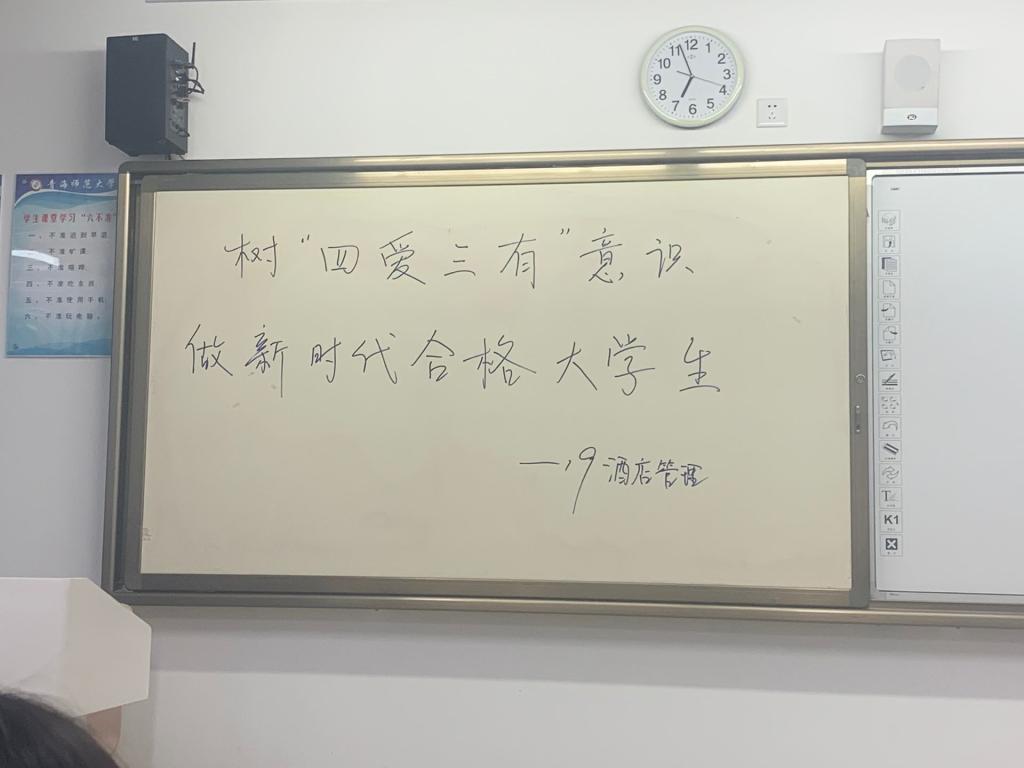 青海师范大学
学生课堂学习“六不准”
一、不准迟到早退
不准旷课
三、不准喧哗
四、不准吃东西
五、不准使用手机
六、不准玩电脑
12
1
2
3
4
5
6
7
8
9
10
11
树“四爱三有”意识
做新时代合格大学生
—19酒店管理
T
K1